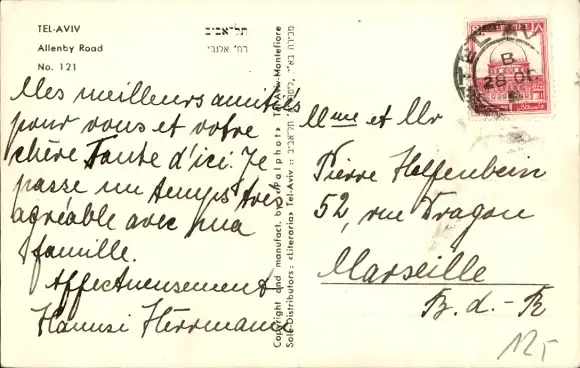 TEL-AVIV
Allenby Road
No. 121
תל־אביב
רח' אלנבי
Mes meilleurs amitiés
pour vous et votre
chère Tante d'ici. Je
passe un temps très
agréable avec ma
famille.
Affectueusement
Hannsi Herrmann
Copyright and manufact. by «Palphot» Tel-Aviv-Montefiore
Sole-Distributors: «Literaria» Tel-Aviv ::
TEL AVIV
B
28 OC
8
Mme et Mr
Pierre Helfenbein
52, rue Dragon
Marseille
B.d.-R